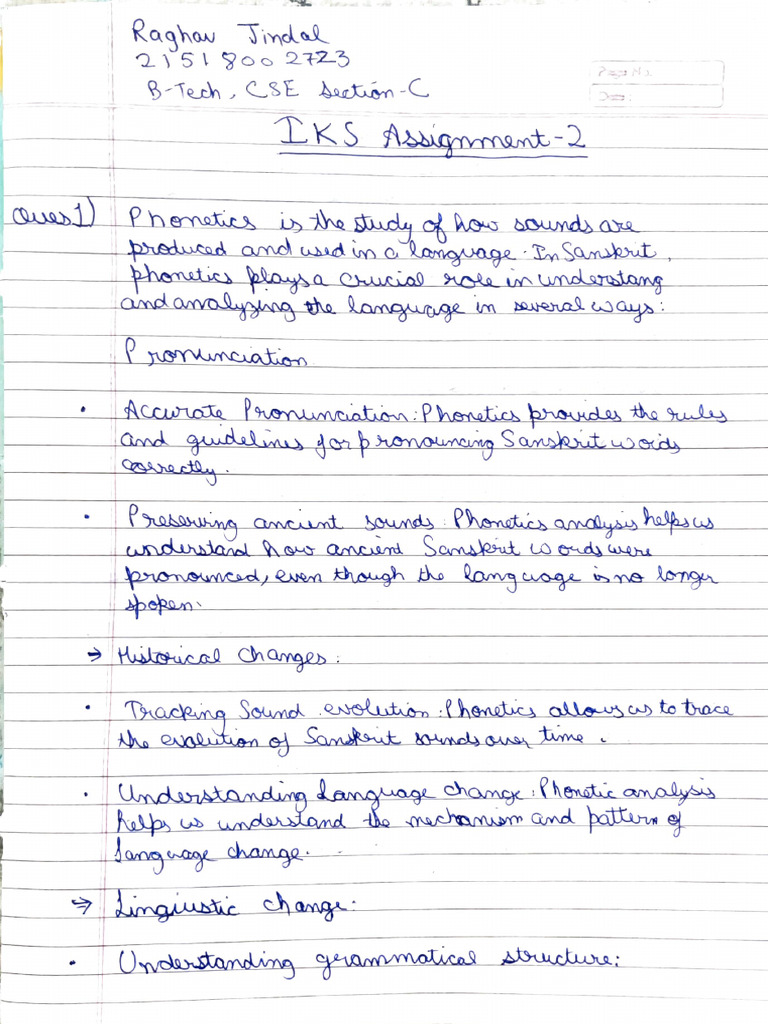 Raghav Jindal
21518002723
B-Tech, CSE Section-C
Page No.
Date:
IKS Assignment-2
Ques 1) Phonetics is the study of how sounds are
produced and used in a language. In Sanskrit,
phonetics plays a crucial role in understang
and analyzing the language in several ways:
Pronunciation
• Accurate Pronunciation: Phonetics provides the rules
and guidelines for pronouncing Sanskrit words
correctly.
• Preserving ancient sounds: Phonetics analysis helps us
understand how ancient Sanskrit words were
pronounced, even though the language is no longer
spoken.
→ Historical changes:
• Tracking Sound evolution: Phonetics allows us to trace
the evolution of Sanskrit sounds over time.
• Understanding Language change: Phonetic analysis
helps us understand the mechanism and pattern of
language change.
⇒ Lingiustic change:
• Understanding grammatical structure: